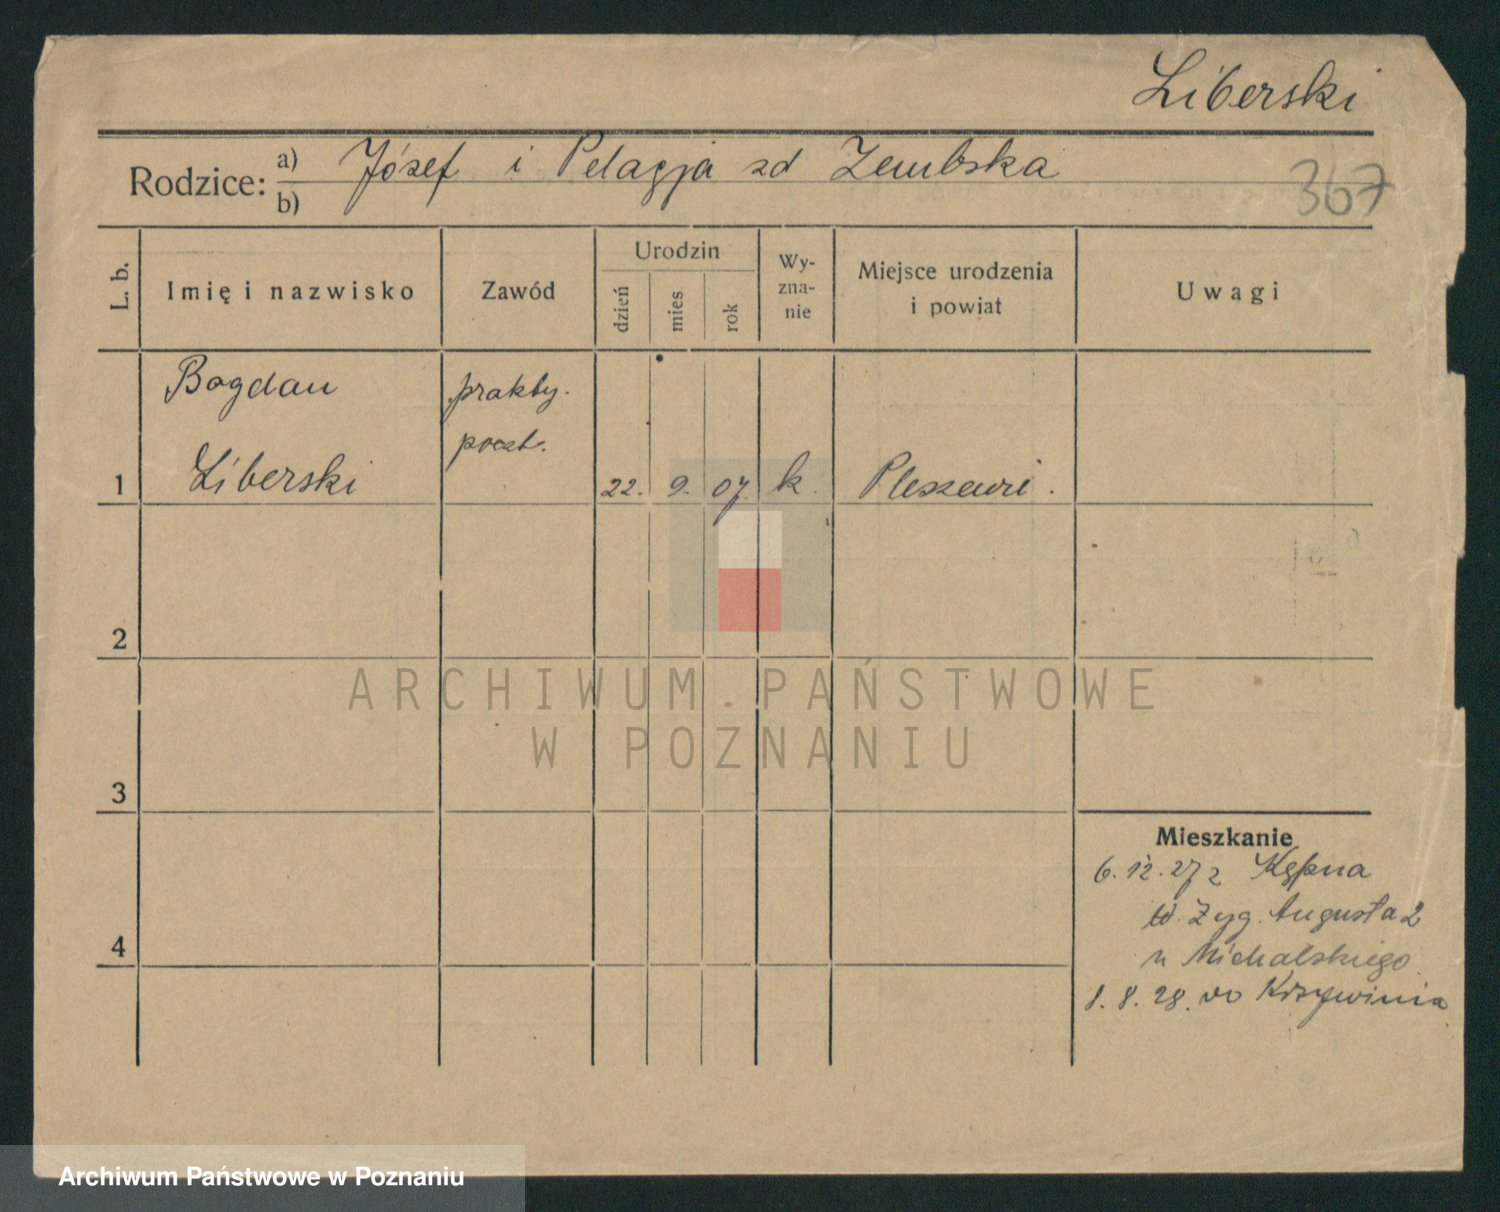 Liberski
Rodzice: a) Józef i Pelagja zd Zembska
b)
367
L. b.
Imię i nazwisko
Zawód
Urodzin
dzień
mies
rok
Wy-
zna-
nie
Miejsce urodzenia
i powiat
Uwagi
Bogdan
prakty.
poczt.
1 Liberski 22. 9. 07. k. Pleszewi.
2
ARCHIWUM PAŃSTWOWE
W POZNANIU
3
Mieszkanie
6. 12. 27 z Kępna
Zyg. Augusta 2
u Michalskiego
4
1. 8. 28. do Krzywinia
Archiwum Państwowe w Poznaniu